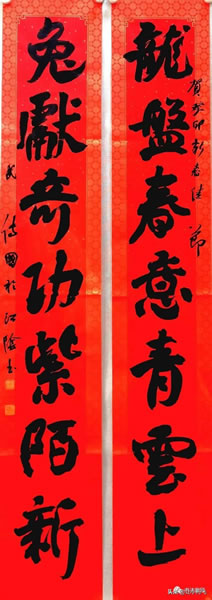 賀癸卯新春佳節
龍盤春意青雲上
兔獻奇功紫陌新
國於江陰書